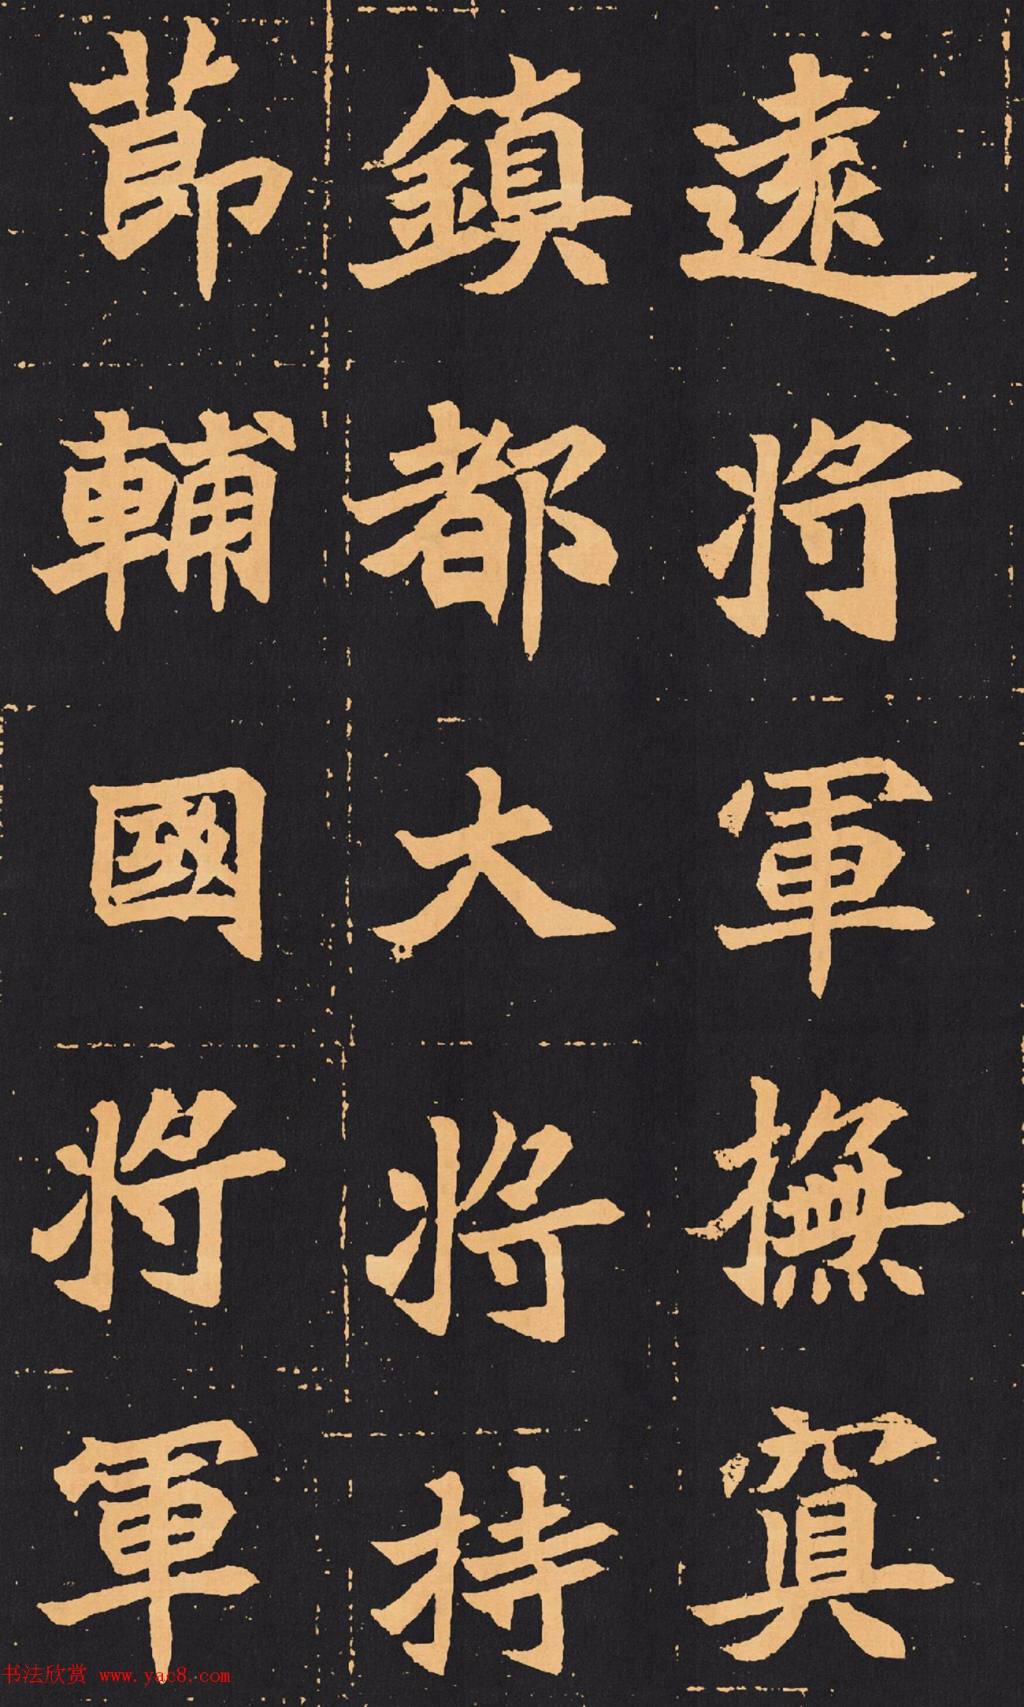 遠將軍撫冥
鎮都大將持
節輔國將軍
书法欣赏 www.yac8.com